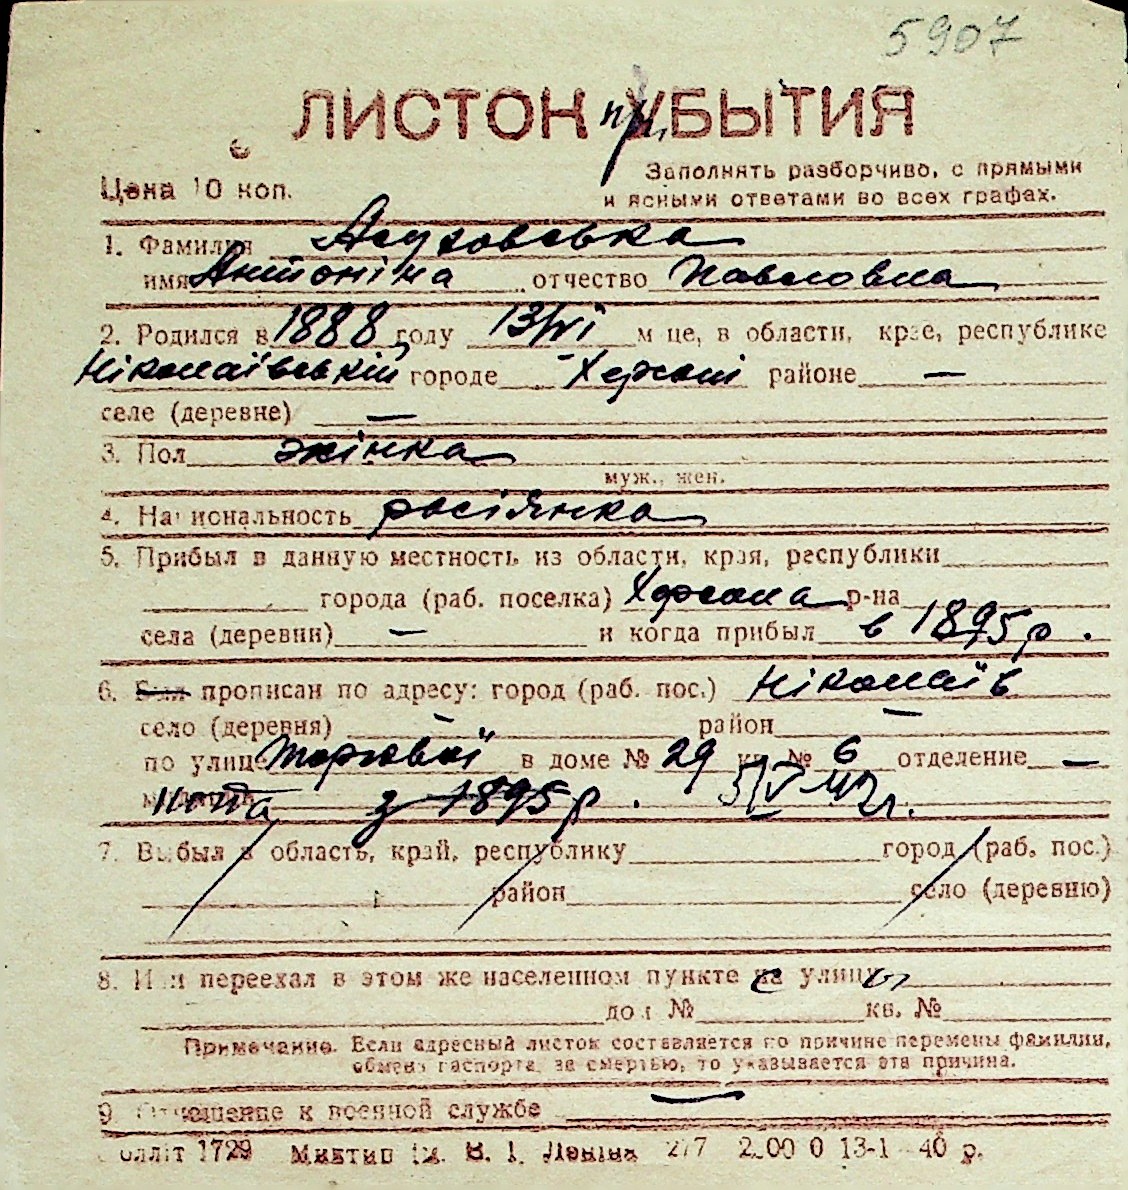 5907
ЛИСТОК пр УБЫТИЯ
Цена 10 коп.
Заполнять разборчиво, с прямыми
и ясными ответами во всех графах.
1. Фамилия
имя Антоніна отчество Павловна
2. Родился в 1888 году 13/VI м-це, в области, крае, республике
Ніколаївській городе Херсоні районе —
селе (деревне) —
3. Пол жінка
муж., жен.
4. Национальность росіянка
5. Прибыл в данную местность из области, края, республики
города (раб. поселка) Херсона р-на
села (деревни) — и когда прибыл в 1895 р.
6. Был прописан по адресу: город (раб. пос.) Ніколаїв
село (деревня) — район —
по улице Торгової в доме № 29 кв. № 6 отделение —
з 1895 р. 5/V 42 г.
7. Выбыл в область, край, республику город (раб. пос.)
район село (деревню)
8. Или переехал в этом же населенном пункте на улицу
дом № кв. №
Примечание. Если адресный листок составляется по причине перемены фамилии,
обмена паспорта, за смертью, то указывается эта причина.
9 Отношение к военной службе —
1729 Миктип ім. В. І. Леніна 277 13-1 40 р.